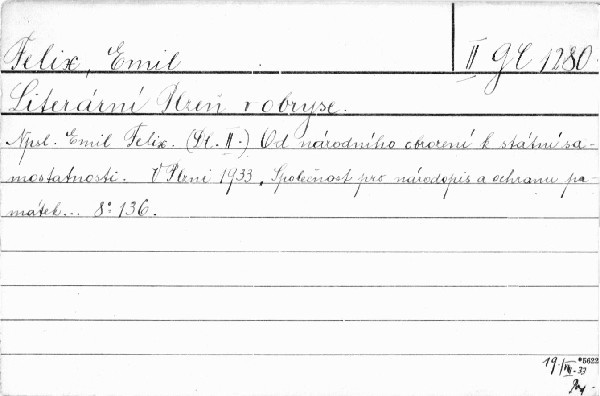 Felix, Emil II GČ 1280.
Literární Plzeň v obryse.
Npsl. Emil Felix. (Dl. II.) Od národního obrození k státní sa-
mostatnosti. V Plzni 1933, Společnost pro národopis a ochranu pa-
mátek... 8° 136.
*5622
19/